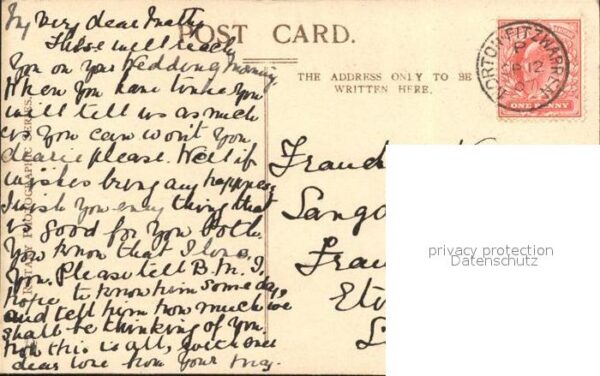 My very dear Matty
POST CARD.
These will reach
You on your wedding morning
When you have time You
will tell us as much
as You can won't You
dearie please. Well if
wishes bring any happiness
I wish you every thing that
is good for you both
You know that I love
You. Please tell B.M. I
hope to know him some day,
and tell him how much we
shall be thinking of You.
Now this is all, with one
dear love from your
THE ADDRESS ONLY TO BE
WRITTEN HERE.
ROTARY PHOTOGRAPHIC SERIES
NORTON FITZWARREN
P
12
07
ONE PENNY
privacy protection
Datenschutz